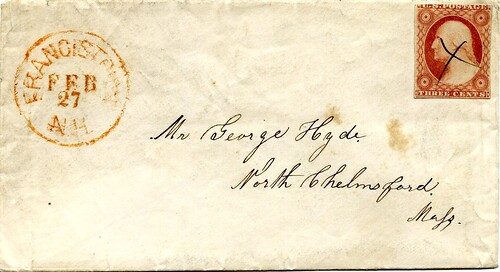 FRANCISTOWN
FEB
27
N.H.
U.S. POSTAGE
THREE CENTS
Mr George Hyde.
North Chelmsford.
Mass.